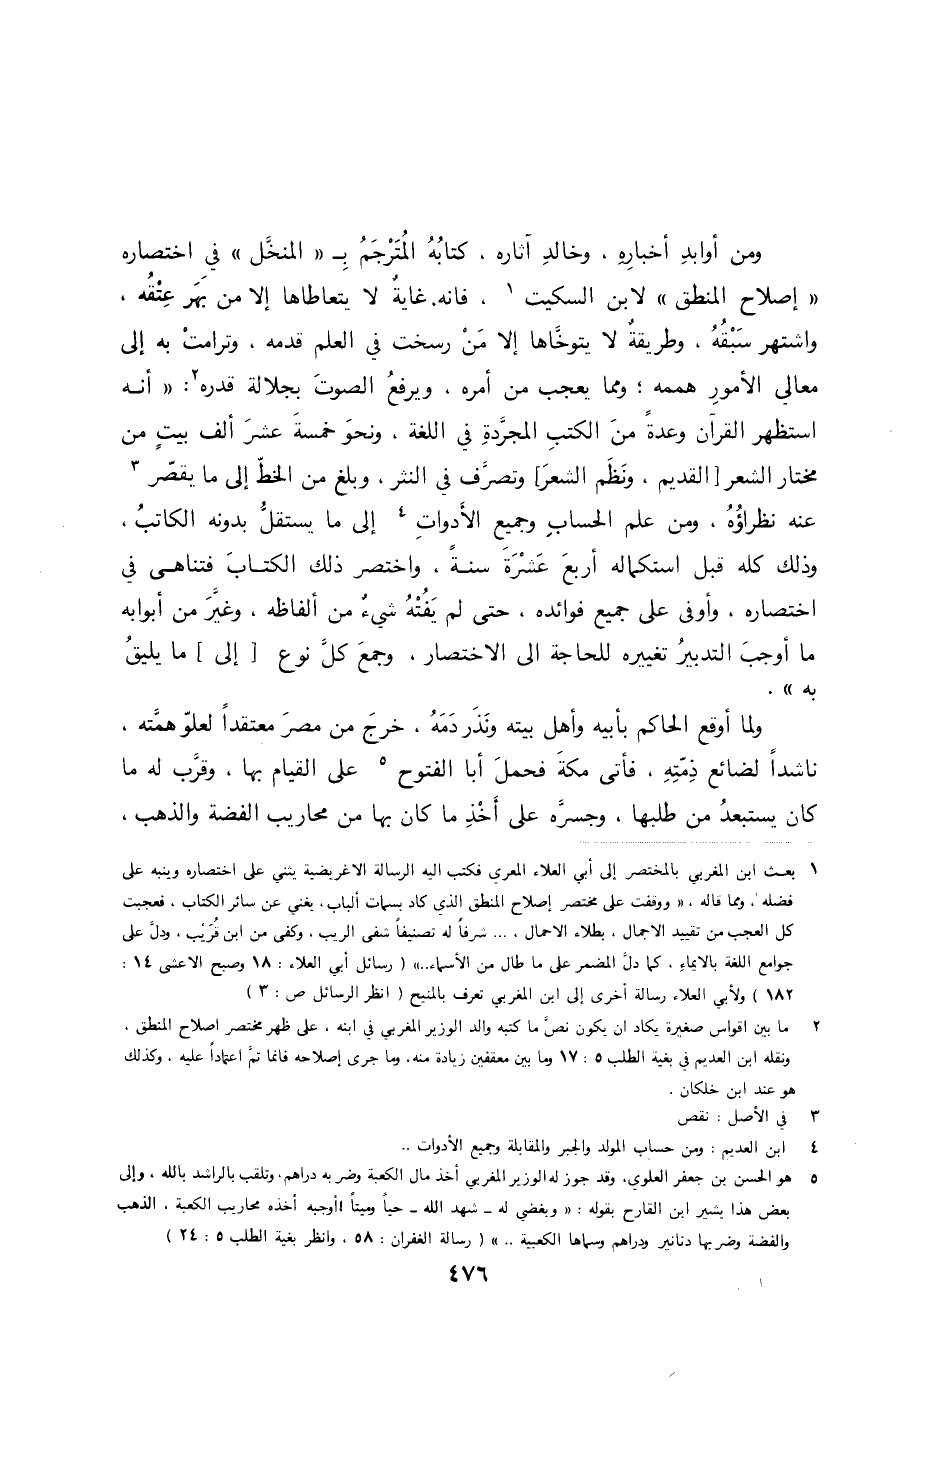 ومن أوابدِ أخبارِهِ ، وخالدِ آثاره ، كتابُهُ المُتَرْجَمُ بِـ « المنخَّل » في اختصاره
« إصلاح المنطق » لابن السكيت ١ ، فانه غايةٌ لا يتعاطاها إلا من بَهَر عِتْقُه ،
واشتهر سَبْقُهُ ، وطريقةٌ لا يتوخَّاها إلا مَنْ رسخت في العلم قدمه ، وترامتْ به إلى
معالي الأمورِ هممه ؛ ومما يعجب من أمره ، ويرفعُ الصوتَ بجلالة قدره٢: « أنـه
استظهر القرآن وعدةً منَ الكتبِ المجرَّدةِ في اللغة ، ونحوَ خمسةَ عشرَ ألف بيتٍ من
مختار الشعر [القديم ، ونَظَم الشعرَ] وتصرَّف في النثر ، وبلغ من الخطّ إلى ما يقصّر ٣
عنه نظراؤُهُ ، ومن علم الحسابِ وجميع الأدواتِ ٤ إلى ما يستقلُّ بدونه الكاتبُ ،
وذلك كله قبل استكماله أربعَ عَشْرَةَ سنـةً ، واختصر ذلك الكتـابَ فتناهـى في
اختصاره ، وأوفى على جميع فوائده ، حتى لم يَفُتْهُ شيءٌ من ألفاظه ، وغيَّرَ من أبوابه
ما أوجبَ التدبيرُ تغييره للحاجة الى الاختصار ، وجمعَ كلَّ نوع [ إلى ] ما يليقُ
به » .
ولما أوقع الحاكم بأبيه وأهل بيته ونَذَر دَمَهُ ، خرجَ من مصرَ معتقداً لعلوّ همَّته ،
ناشداً لضائع ذِمّتِهِ ، فأتى مكةَ فحملَ أبا الفتوح ٥ على القيام بها ، وقرَّب له ما
كان يستبعدُ من طلبها ، وجسرَّه على أَخْذِ ما كان بها من محاريب الفضة والذهب ،
١ بعث ابن المغربي بالمختصر إلى أبي العلاء المعري فكتب اليه الرسالة الاغريضية يثني على اختصاره وينبه على
فضله ، ومما قاله ، « ووقفت على مختصر إصلاح المنطق الذي كاد بسمات ألباب ، يغني عن سائر الكتاب ، فعجبت
كل العجب من تقييد الاجمال ، بطلاء الاحمال ، ... شرفاً له تصنيفاً شفى الريب ، وكفى من ابن قُرَيْب ، ودلَّ على
جوامع اللغة بالايماء ، كما دلَّ المضمر على ما طال من الأسماء..» ( رسائل أبي العلاء : ١٨ وصبح الاعشى ١٤ :
١٨٢ ) ولأبي العلاء رسالة أخرى إلى ابن المغربي تعرف بالمنيح ( انظر الرسائل ص : ٣ )
٢ ما بين اقواس صغيرة يكاد ان يكون نصَّ ما كتبه والد الوزير المغربي في ابنه ، على ظهر مختصر اصلاح المنطق ،
ونقله ابن العديم في بغية الطلب ٥ : ١٧ وما بين معقفين زيادة منه، وما جرى إصلاحه فانما تمَّ اعتماداً عليه ، وكذلك
هو عند ابن خلكان .
٣ في الأصل : نقص
٤ ابن العديم : ومن حساب المولد والجبر والمقابلة وجميع الأدوات ..
٥ هو الحسن بن جعفر العلوي، وقد جوز له الوزير المغربي أخذ مال الكعبة وضر به دراهم، وتلقب بالراشد بالله ، وإلى
بعض هذا يشير ابن القارح بقوله : « وبغضي له ــ شهد الله ــ حياً وميتاً أوجبه أخذه محاريب الكعبة ، الذهب
والفضة وضر بها دنانير ودراهم وسماها الكعبية .. » ( رسالة الغفران : ٥٨ ، وانظر بغية الطلب ٥ : ٢٤ )
٤٧٦